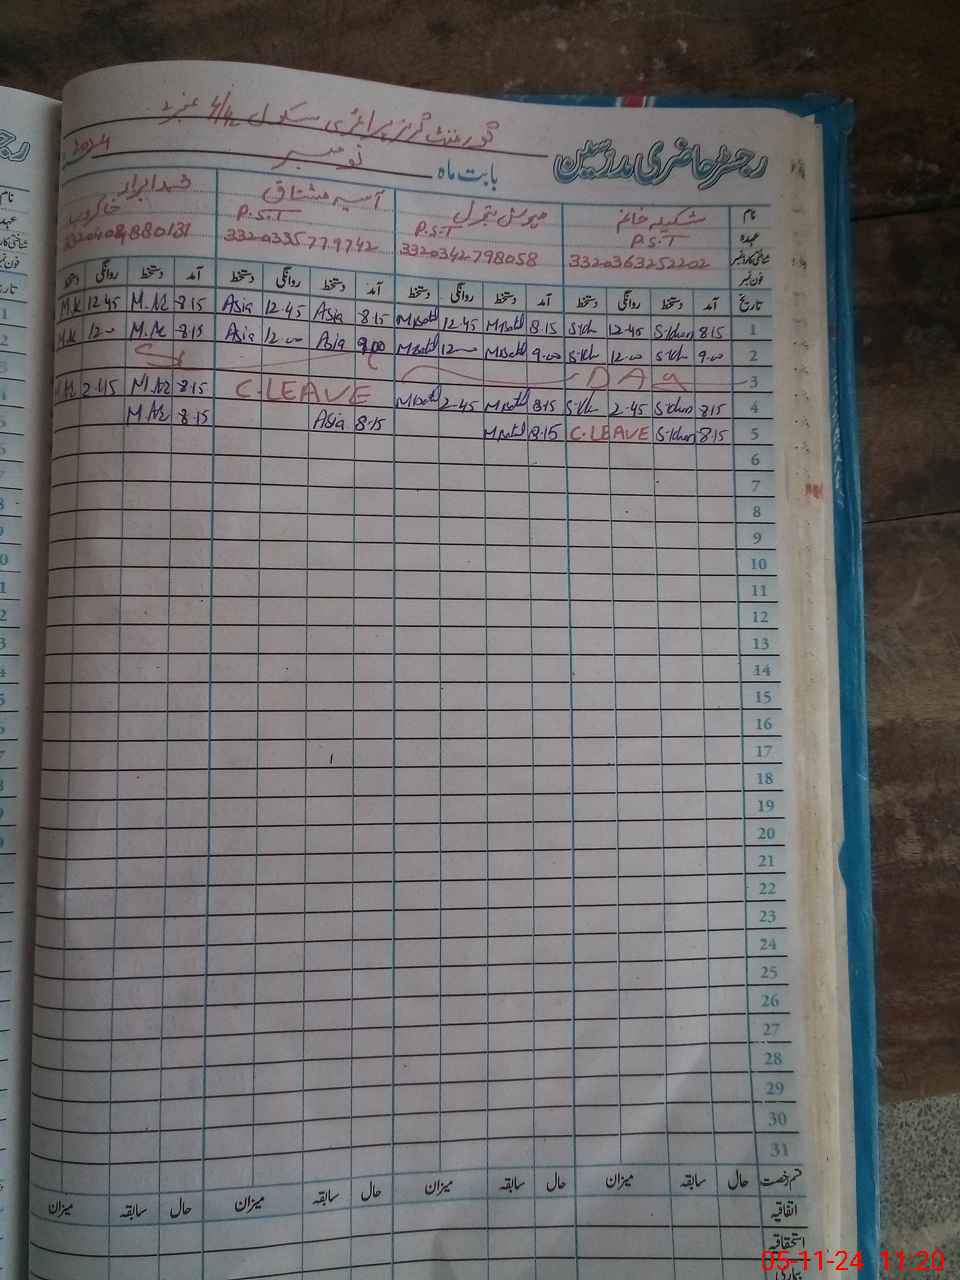 گورنمنٹ گرلز پرائمری سکول 4/42 نمبر 2
رجسٹر حاضری مدرسین بابت ماہ نومبر 2024
نام شکیلہ خانم مہوش بتول آسیہ مشتاق
عہدہ P.S.T P.S.T P.S.T خاکروب
شناختی کارڈ نمبر 3320363252202 3320342798058 3320335779742
فون نمبر
تاریخ آمد دستخط روانگی دستخط آمد دستخط روانگی دستخط آمد دستخط روانگی دستخط آمد دستخط روانگی دستخط
M.K 12.45 M.K 8.15 Asia 12.45 Asia 8.15 M.Batol 12.45 M.Batol 8.15 S.kh 12.45 S.khan 8.15 1
M.K 12.00 M.K 8.15 Asia 12.00 Asia 9.00 M.Batol 12.00 M.Batol 9.00 S.kh 12.00 S.kh 9.00 2
S D A Y 3
2.45 M.K 8.15 C.LEAVE M.Batol 2.45 M.Batol 8.15 S.kh 2.45 S.khan 8.15 4
M.K 8.15 Asia 8.15 M.Batol 8.15 C.LEAVE S.khan 8.15 5
6
7
8
9
10
11
12
13
14
15
16
17
18
19
20
21
22
23
24
25
26
27
28
29
30
31
قسم رخصت حال سابقہ میزان حال سابقہ میزان حال سابقہ میزان حال سابقہ میزان
اتفاقیہ
استحقاقیہ
بیماری
05-11-24 11:20